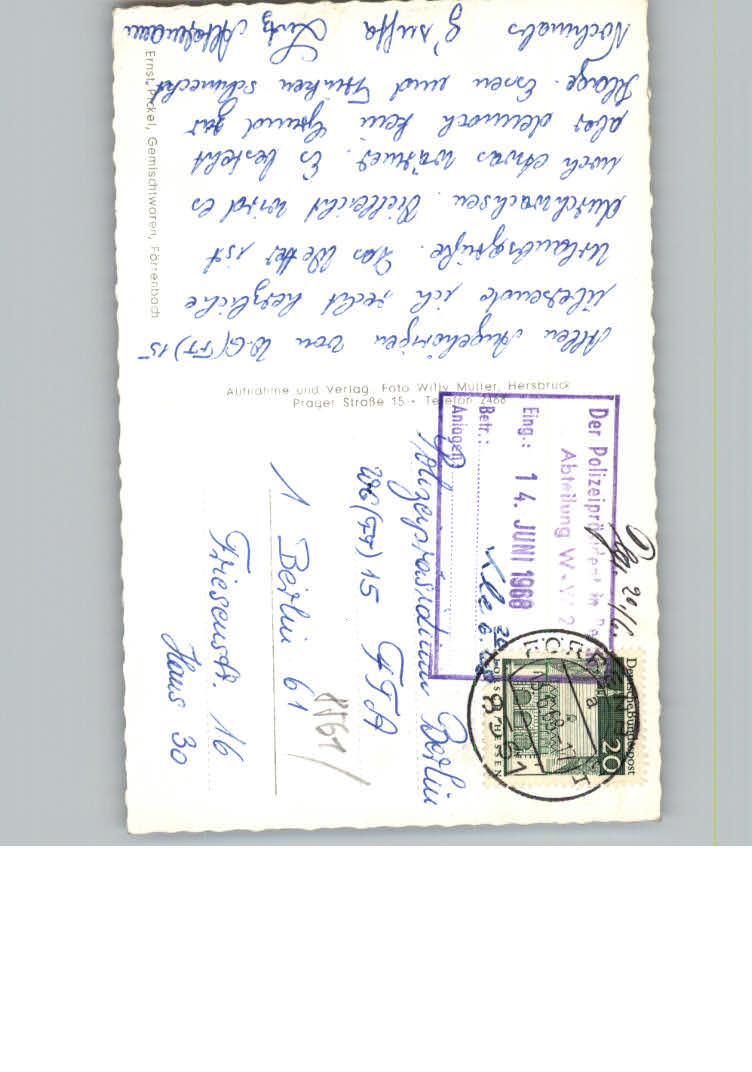 Allen Angehörigen von W-G(FT) 15
übersende ich recht herzliche
Urlaubsgrüße. Das Wetter ist
durchwachsen. Vielleicht wird es
noch etwas wärmer. Es besteht
aber dennoch kein Grund zur
Klage. Essen und Trinken schmeckt
Nochmals g'suffa Lutz
Ernst Pickel, Gemischtwaren, Förrenbach
Aufnahme und Verlag: Foto Willy Müller, Hersbruck
Prager Straße 15 - Telefon 2468
Der Polizeipräsident in
Abteilung W - W 2
Eing.: 14. JUNI 1968
Betr.:
Anlagen
20/6.
Deutsche Bundespost
20
LORSCH
HESSEN
FÖRRENBACH
8561
a
Polizeipräsidium Berlin
WG(FT) 15 FTA
1 Berlin 61
Friesenstr. 16
Haus 30